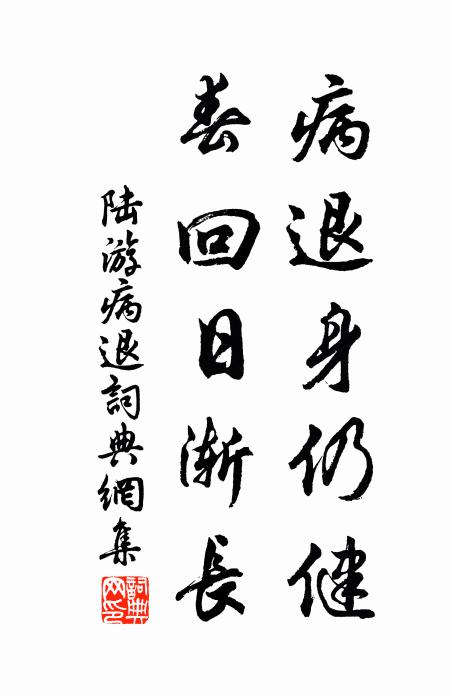 病退身仍健
春回日渐長
陆游病退詞典網集
詞典網印